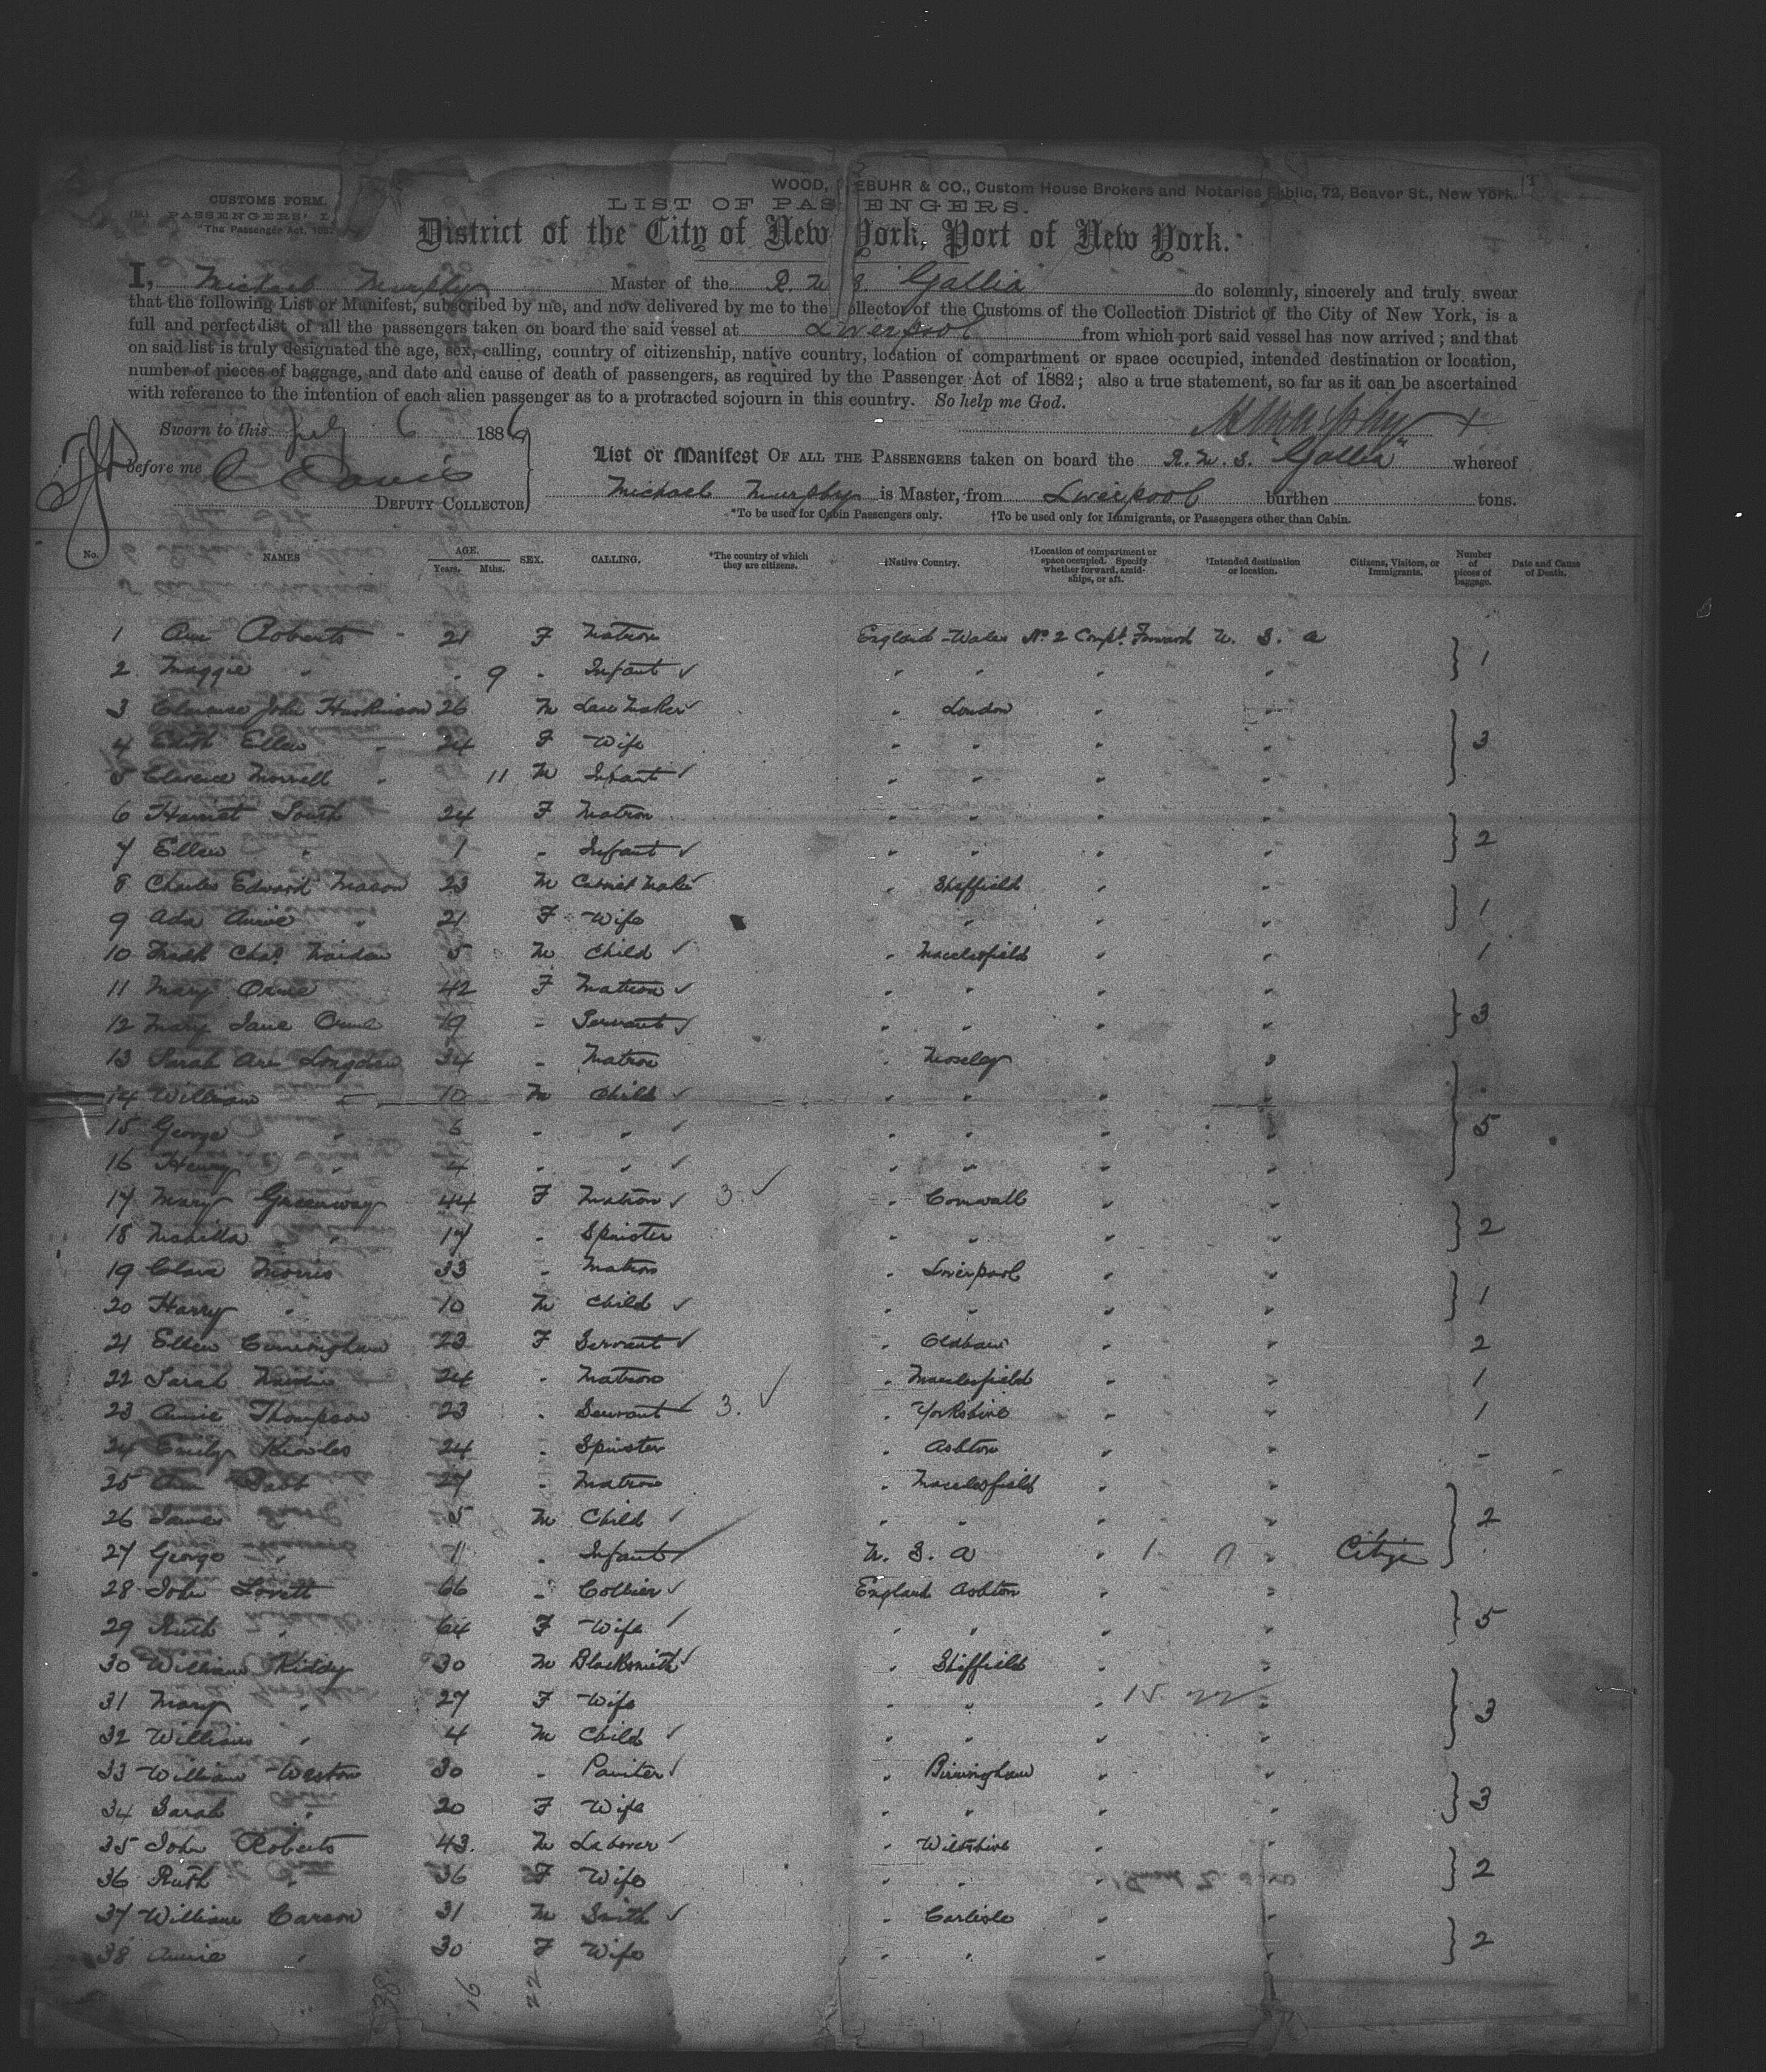 WOOD, EBUHR & CO., Custom House Brokers and Notaries Public, 72, Beaver St., New York.
CUSTOMS FORM.
PASSENGERS' L
"The Passenger Act, 188
LIST OF PAS ENGERS.
District of the City of New York, Port of New York.
I, Michael Murphy Master of the R. M. S. "Gallia" do solemnly, sincerely and truly swear
that the following List or Manifest, subscribed by me, and now delivered by me to the ollector of the Customs of the Collection District of the City of New York, is a
full and perfect list of all the passengers taken on board the said vessel at Liverpool from which port said vessel has now arrived; and that
on said list is truly designated the age, sex, calling, country of citizenship, native country, location of compartment or space occupied, intended destination or location,
number of pieces of baggage, and date and cause of death of passengers, as required by the Passenger Act of 1882; also a true statement, so far as it can be ascertained
with reference to the intention of each alien passenger as to a protracted sojourn in this country. So help me God.
Sworn to this July 6 1886 MMurphy
before me C Davis
DEPUTY COLLECTOR
List or Manifest OF ALL THE PASSENGERS taken on board the R. M. S. "Gallia" whereof
Michael Murphy is Master, from Liverpool burthen tons.
*To be used for Cabin Passengers only. †To be used only for Immigrants, or Passengers other than Cabin.
No. NAMES AGE. Years. Mths. SEX. CALLING. *The country of which they are citizens. †Native Country. †Location of compartment or space occupied. Specify whether forward, amidships, or aft. †Intended destination or location. Citizens, Visitors, or Immigrants. Number of pieces of baggage. Date and Cause of Death.
1 Ann Roberts 21 F Matron England Wales No 2 Compt. Forward U. S. A
2 Maggie " 9 " Infant ✓ " " " " } 1
3 Clarence John Huskinson 26 M Lace Maker ✓ " London " "
4 Edith Ellen " 24 F Wife " " " " } 3
5 Clarence Morrell " 11 M Infant ✓ " " " "
6 Harriet South 24 F Matron " " " "
7 Ellen " 1 " Infant ✓ " " " " } 2
8 Charles Edward Mason 23 M Cabinet Maker ✓ " Sheffield " "
9 Ada Annie " 21 F Wife " " " } 1
10 Fredk Chas. Maiden 5 M Child ✓ " Macclesfield " " 1
11 Mary Orme 42 F Matron ✓ " " " "
12 Mary Jane Orme 19 " Servant ✓ " " " " } 3
13 Sarah Ann Longden 34 " Matron " Moseley " "
14 William " 10 M Child ✓ " " " "
15 George " 6 " " ✓ " " " " } 5
16 Henry " 4 " " ✓ " " " "
17 Mary Greenway 44 F Matron ✓ 3. ✓ " Cornwall " "
18 " 17 " Spinster " " " " } 2
19 Clara Morris 33 " Matron " Liverpool " "
20 Harry " 10 M Child ✓ " " " " } 1
21 Ellen Cunningham 23 F Servant ✓ " Oldham " " 2
22 Sarah 24 " Matron " Macclesfield " " 1
23 Annie Thompson 23 " Servant ✓ 3. ✓ " Yorkshire " " 1
24 Emily Knowles 24 " Spinster " Ashton " " -
25 Ann 27 " Matron " Macclesfield " "
26 James 5 M Child ✓ " " " " } 2
27 George " 1 " Infant ✓ U. S. A " 1 " Citizen
28 John Lovett 66 " Collier ✓ England Ashton " "
29 Ruth " 64 F Wife ✓ " " " " } 5
30 William Kiddy 30 M Blacksmith ✓ " Sheffield " "
31 Mary " 27 F Wife " " " 15 22 " } 3
32 William " 4 M Child ✓ " " " "
33 William Weston 30 " Painter ✓ " Birmingham " "
34 Sarah " 20 F Wife " " " " } 3
35 John Roberts 43. M Laborer ✓ " Wiltshire " "
36 Ruth " 36 F Wife " " " } 2
37 William Carson 31 M Smith ✓ " Carlisle " "
38 Annie " 30 F Wife " " " " } 2
38 16 22